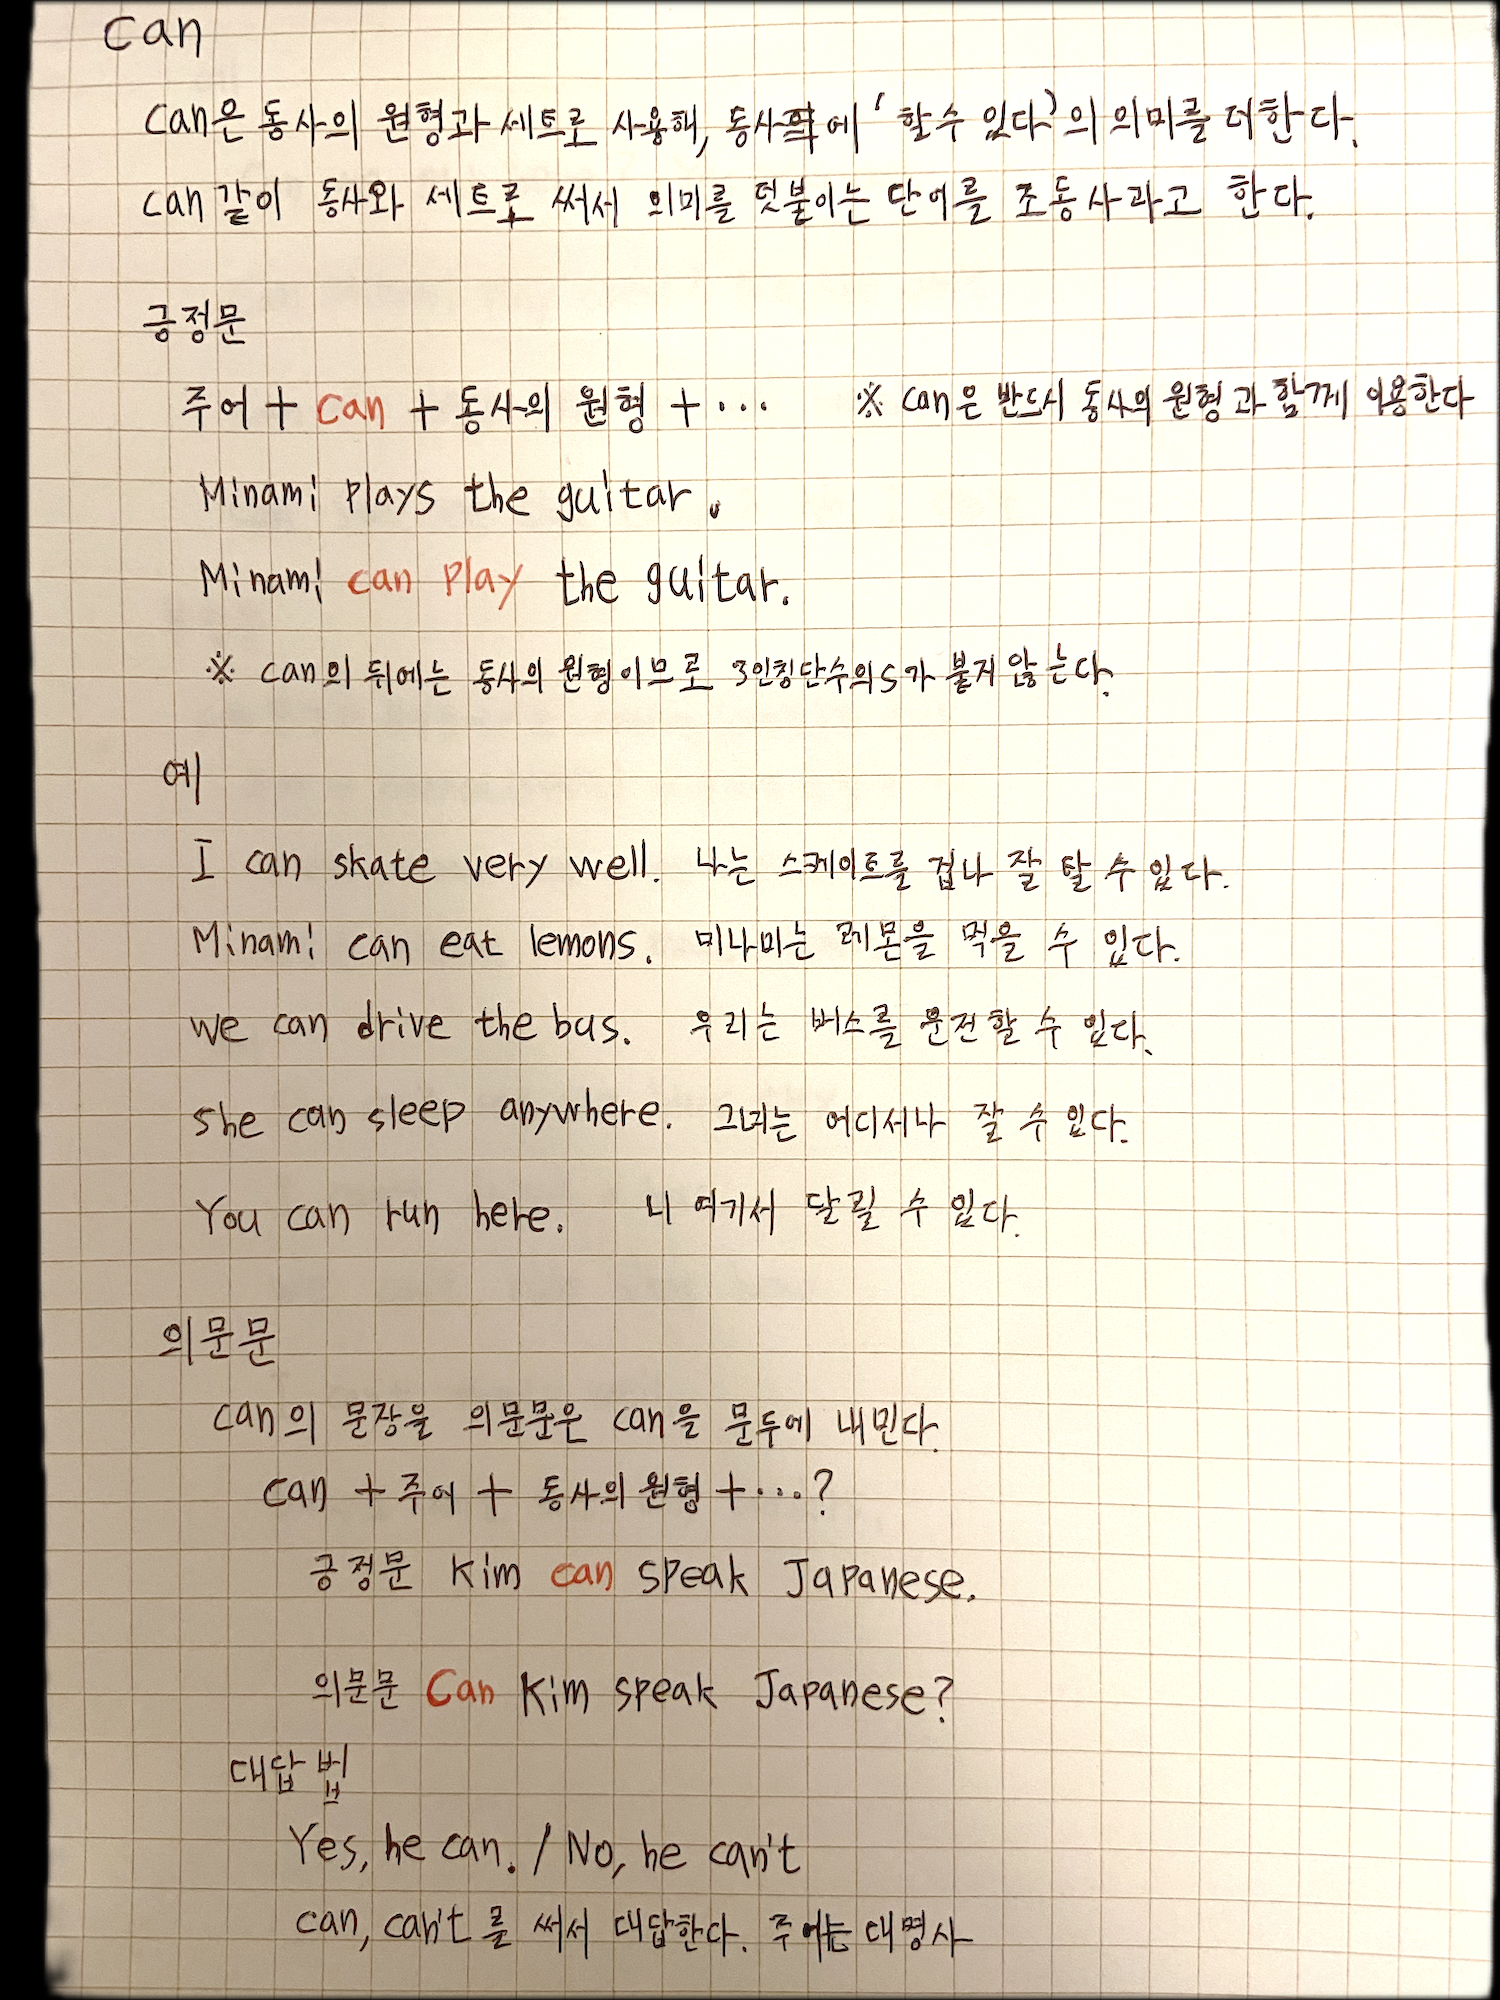 can
can은 동사의 원형과 세트로 사용해, 동사에 '할 수 있다'의 의미를 더한다.
can같이 동사와 세트로 써서 의미를 덧붙이는 단어를 조동사라고 한다.
긍정문
주어 + can + 동사의 원형 + ··· ※ can은 반드시 동사의 원형과 함께 이용한다
Minami plays the guitar.
Minami can play the guitar.
※ can의 뒤에는 동사의 원형이므로 3인칭단수의 s가 붙지 않는다.
예
I can skate very well. 나는 스케이트를 겁나 잘 탈 수 있다.
Minami can eat lemons. 미나미는 레몬을 먹을 수 있다.
we can drive the bus. 우리는 버스를 운전할 수 있다.
she can sleep anywhere. 그녀는 어디서나 잘 수 있다.
You can run here. 니 여기서 달릴 수 있다.
의문문
can의 문장을 의문문은 can을 문두에 내민다.
can + 주어 + 동사의 원형 + ···?
긍정문 Kim can speak Japanese.
의문문 Can Kim speak Japanese?
대답 법
Yes, he can. / No, he can't
can, can't 를 써서 대답한다. 주어는 대명사